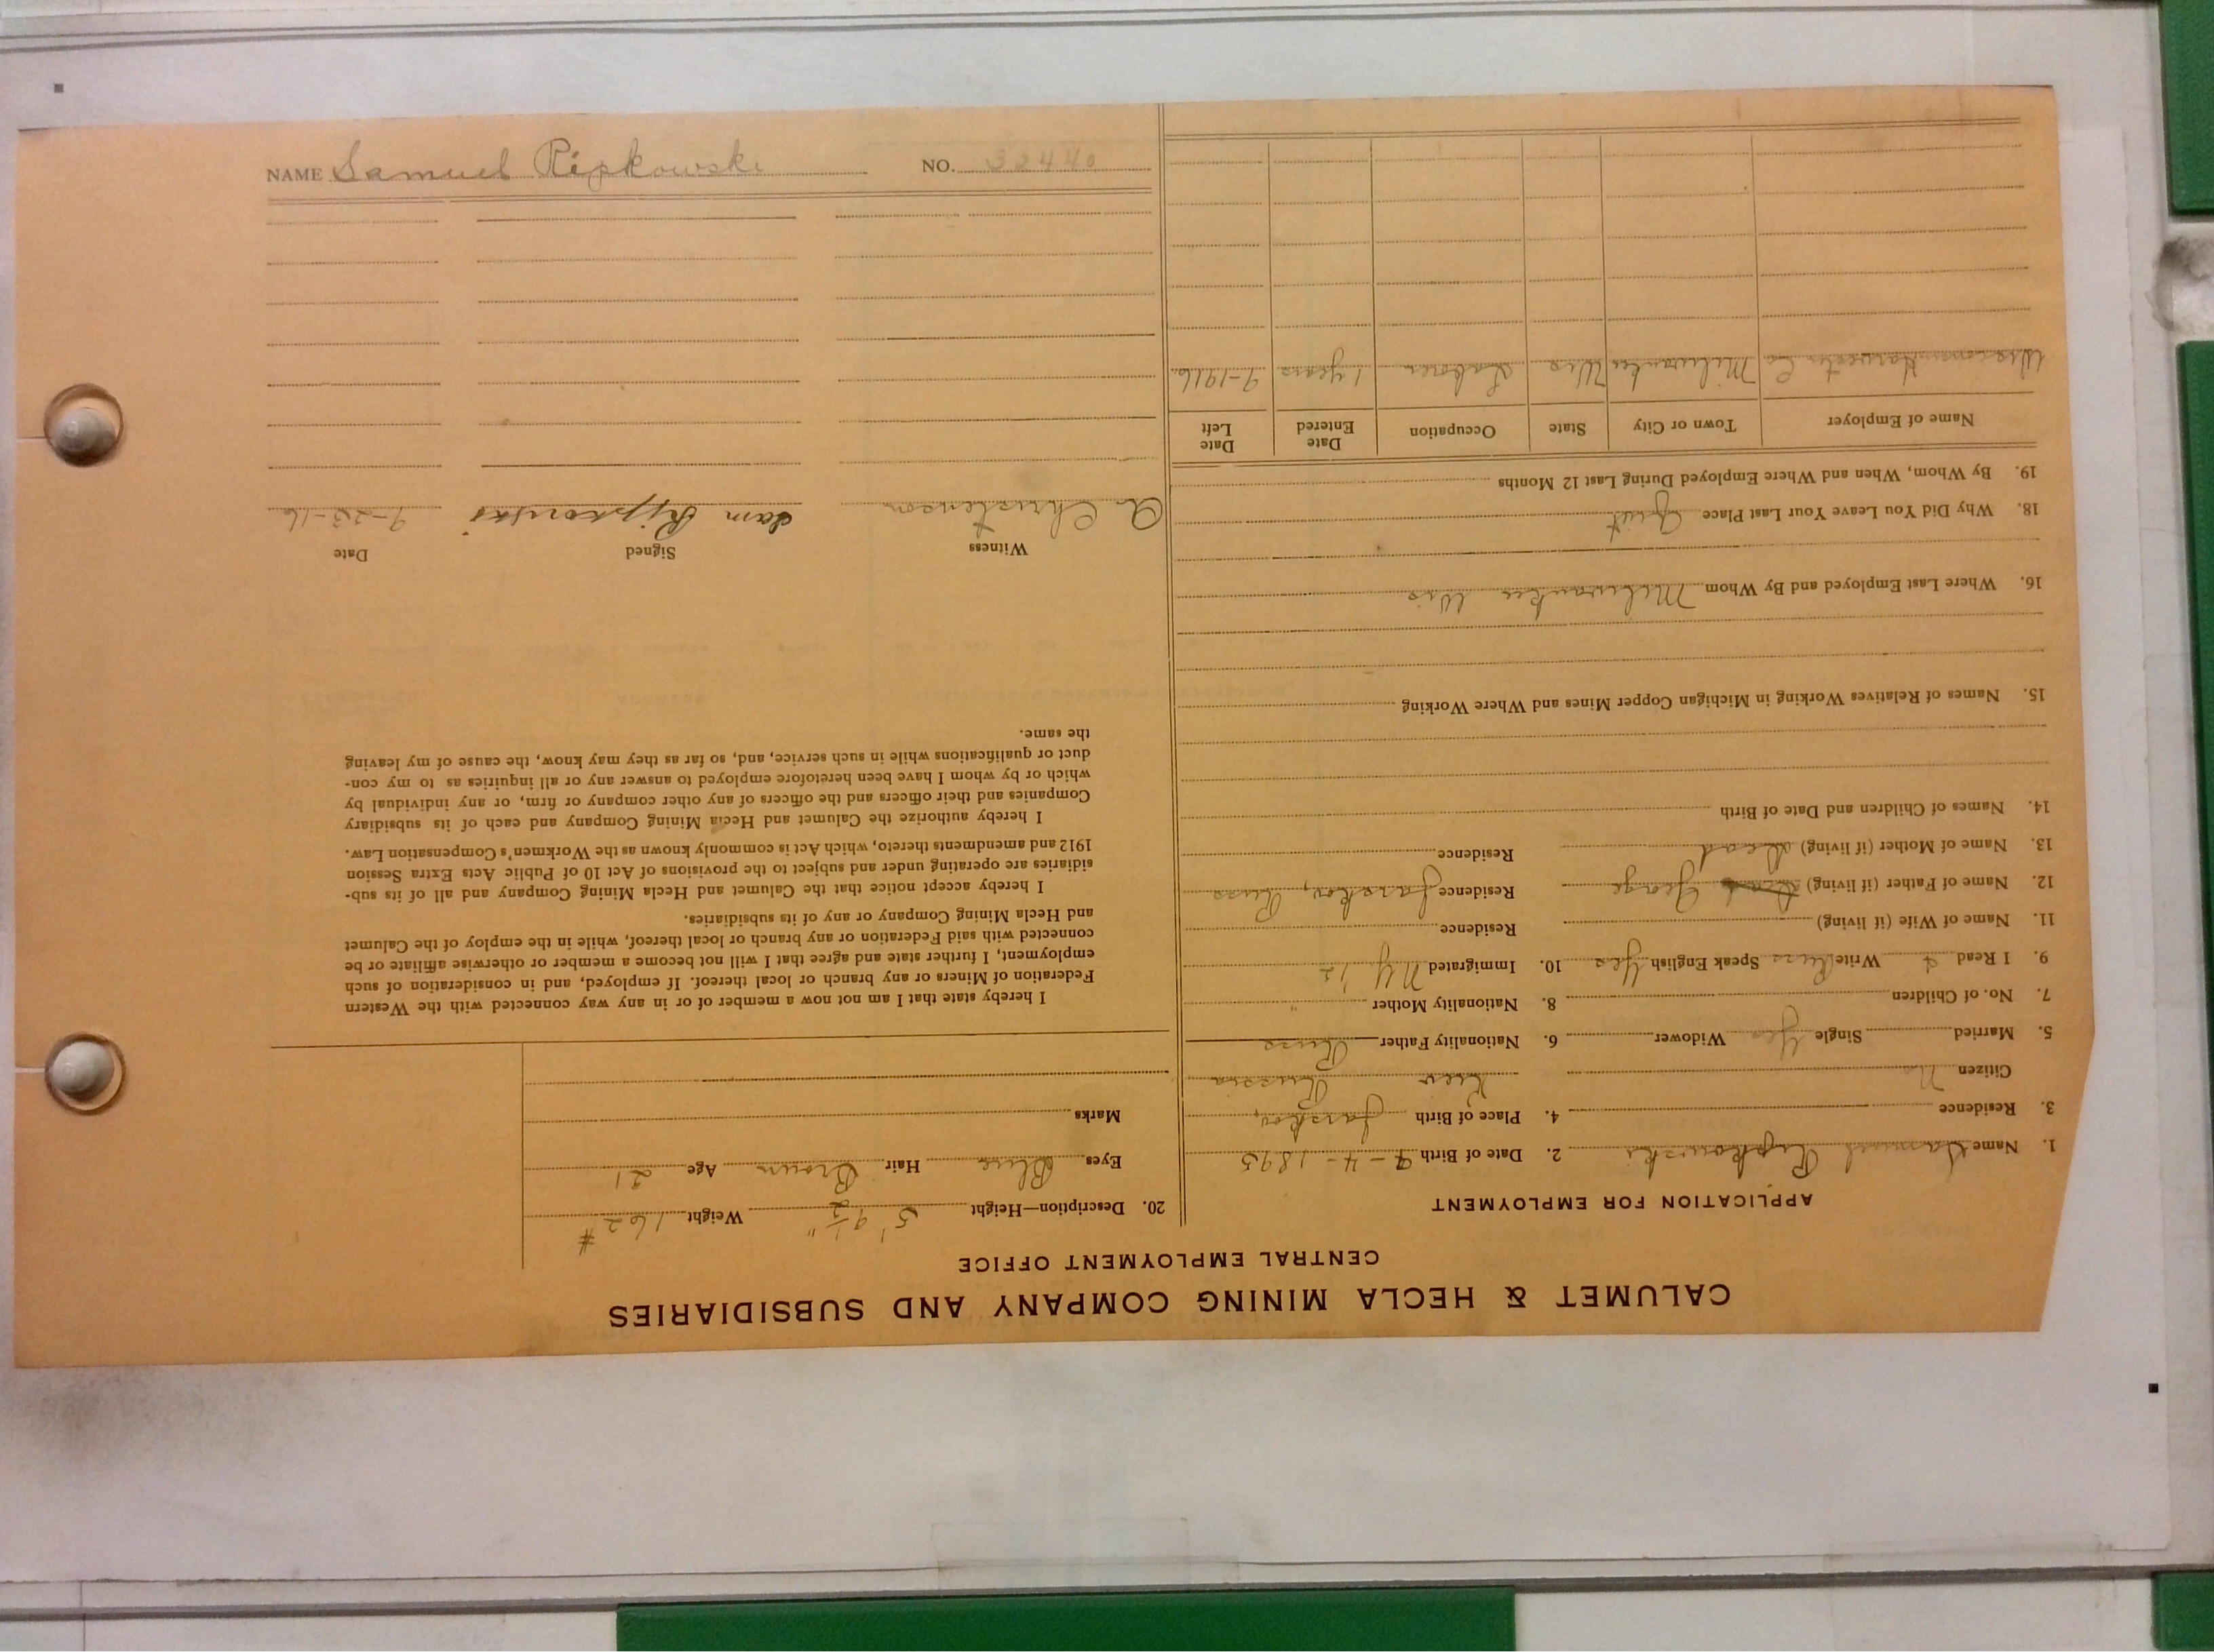 CALUMET & HECLA MINING COMPANY AND SUBSIDIARIES
CENTRAL EMPLOYMENT OFFICE
APPLICATION FOR EMPLOYMENT
1. Name Samuel Ripkowski 2. Date of Birth 9-4-1895
3. Residence 4. Place of Birth Jarskov,
Citizen No Kiev Russia
5. Married Single Yes Widower 6. Nationality Father Russ
7. No. of Children 8. Nationality Mother "
9. I Read & Write Russ Speak English Yes 10. Immigrated NY 12
11. Name of Wife (if living) Residence
12. Name of Father (if living) George Residence Jarskov, Russ
13. Name of Mother (if living) dead Residence
14. Names of Children and Date of Birth
15. Names of Relatives Working in Michigan Copper Mines and Where Working
16. Where Last Employed and By Whom Milwaukee Wis
18. Why Did You Leave Your Last Place Quit
19. By Whom, When and Where Employed During Last 12 Months
Name of Employer Town or City State Occupation Date Entered Date Left
Harvester Co Milwaukee Wis Laborer 1 years 9-1916
20. Description—Height 5' 9½" Weight 162#
Eyes Blue Hair Brown Age 21
Marks
I hereby state that I am not now a member of or in any way connected with the Western
Federation of Miners or any branch or local thereof. If employed, and in consideration of such
employment, I further state and agree that I will not become a member or otherwise affiliate or be
connected with said Federation or any branch or local thereof, while in the employ of the Calumet
and Hecla Mining Company or any of its subsidiaries.
I hereby accept notice that the Calumet and Hecla Mining Company and all of its sub-
sidiaries are operating under and subject to the provisions of Act 10 of Public Acts Extra Session
1912 and amendments thereto, which Act is commonly known as the Workmen's Compensation Law.
I hereby authorize the Calumet and Hecla Mining Company and each of its subsidiary
Companies and their officers and the officers of any other company or firm, or any individual by
which or by whom I have been heretofore employed to answer any or all inquiries as to my con-
duct or qualifications while in such service, and, so far as they may know, the cause of my leaving
the same.
Witness Signed Date
A Christenson Sam Ripkowski 9-23-16
NAME Samuel Ripkowski NO. 32440